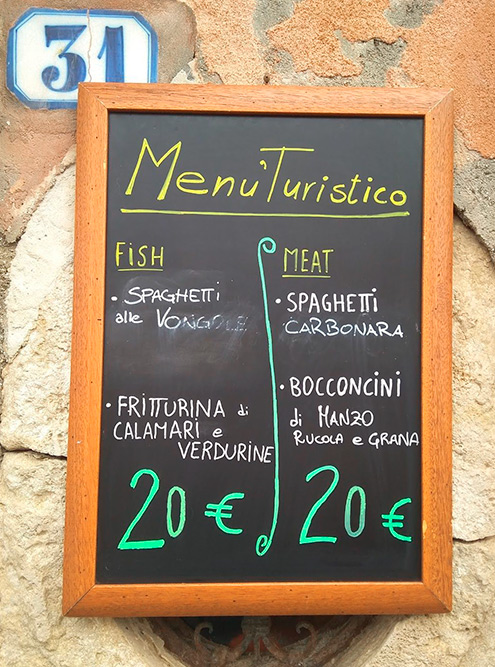 31
Menu' Turistico
FISH
• SPAGHETTI
alle VONGOLE
• FRITTURINA di
CALAMARI e
VERDURINE
20 €
MEAT
• SPAGHETTI
CARBONARA
• BOCCONCINI
di MANZO
RUCOLA e GRANA
20 €